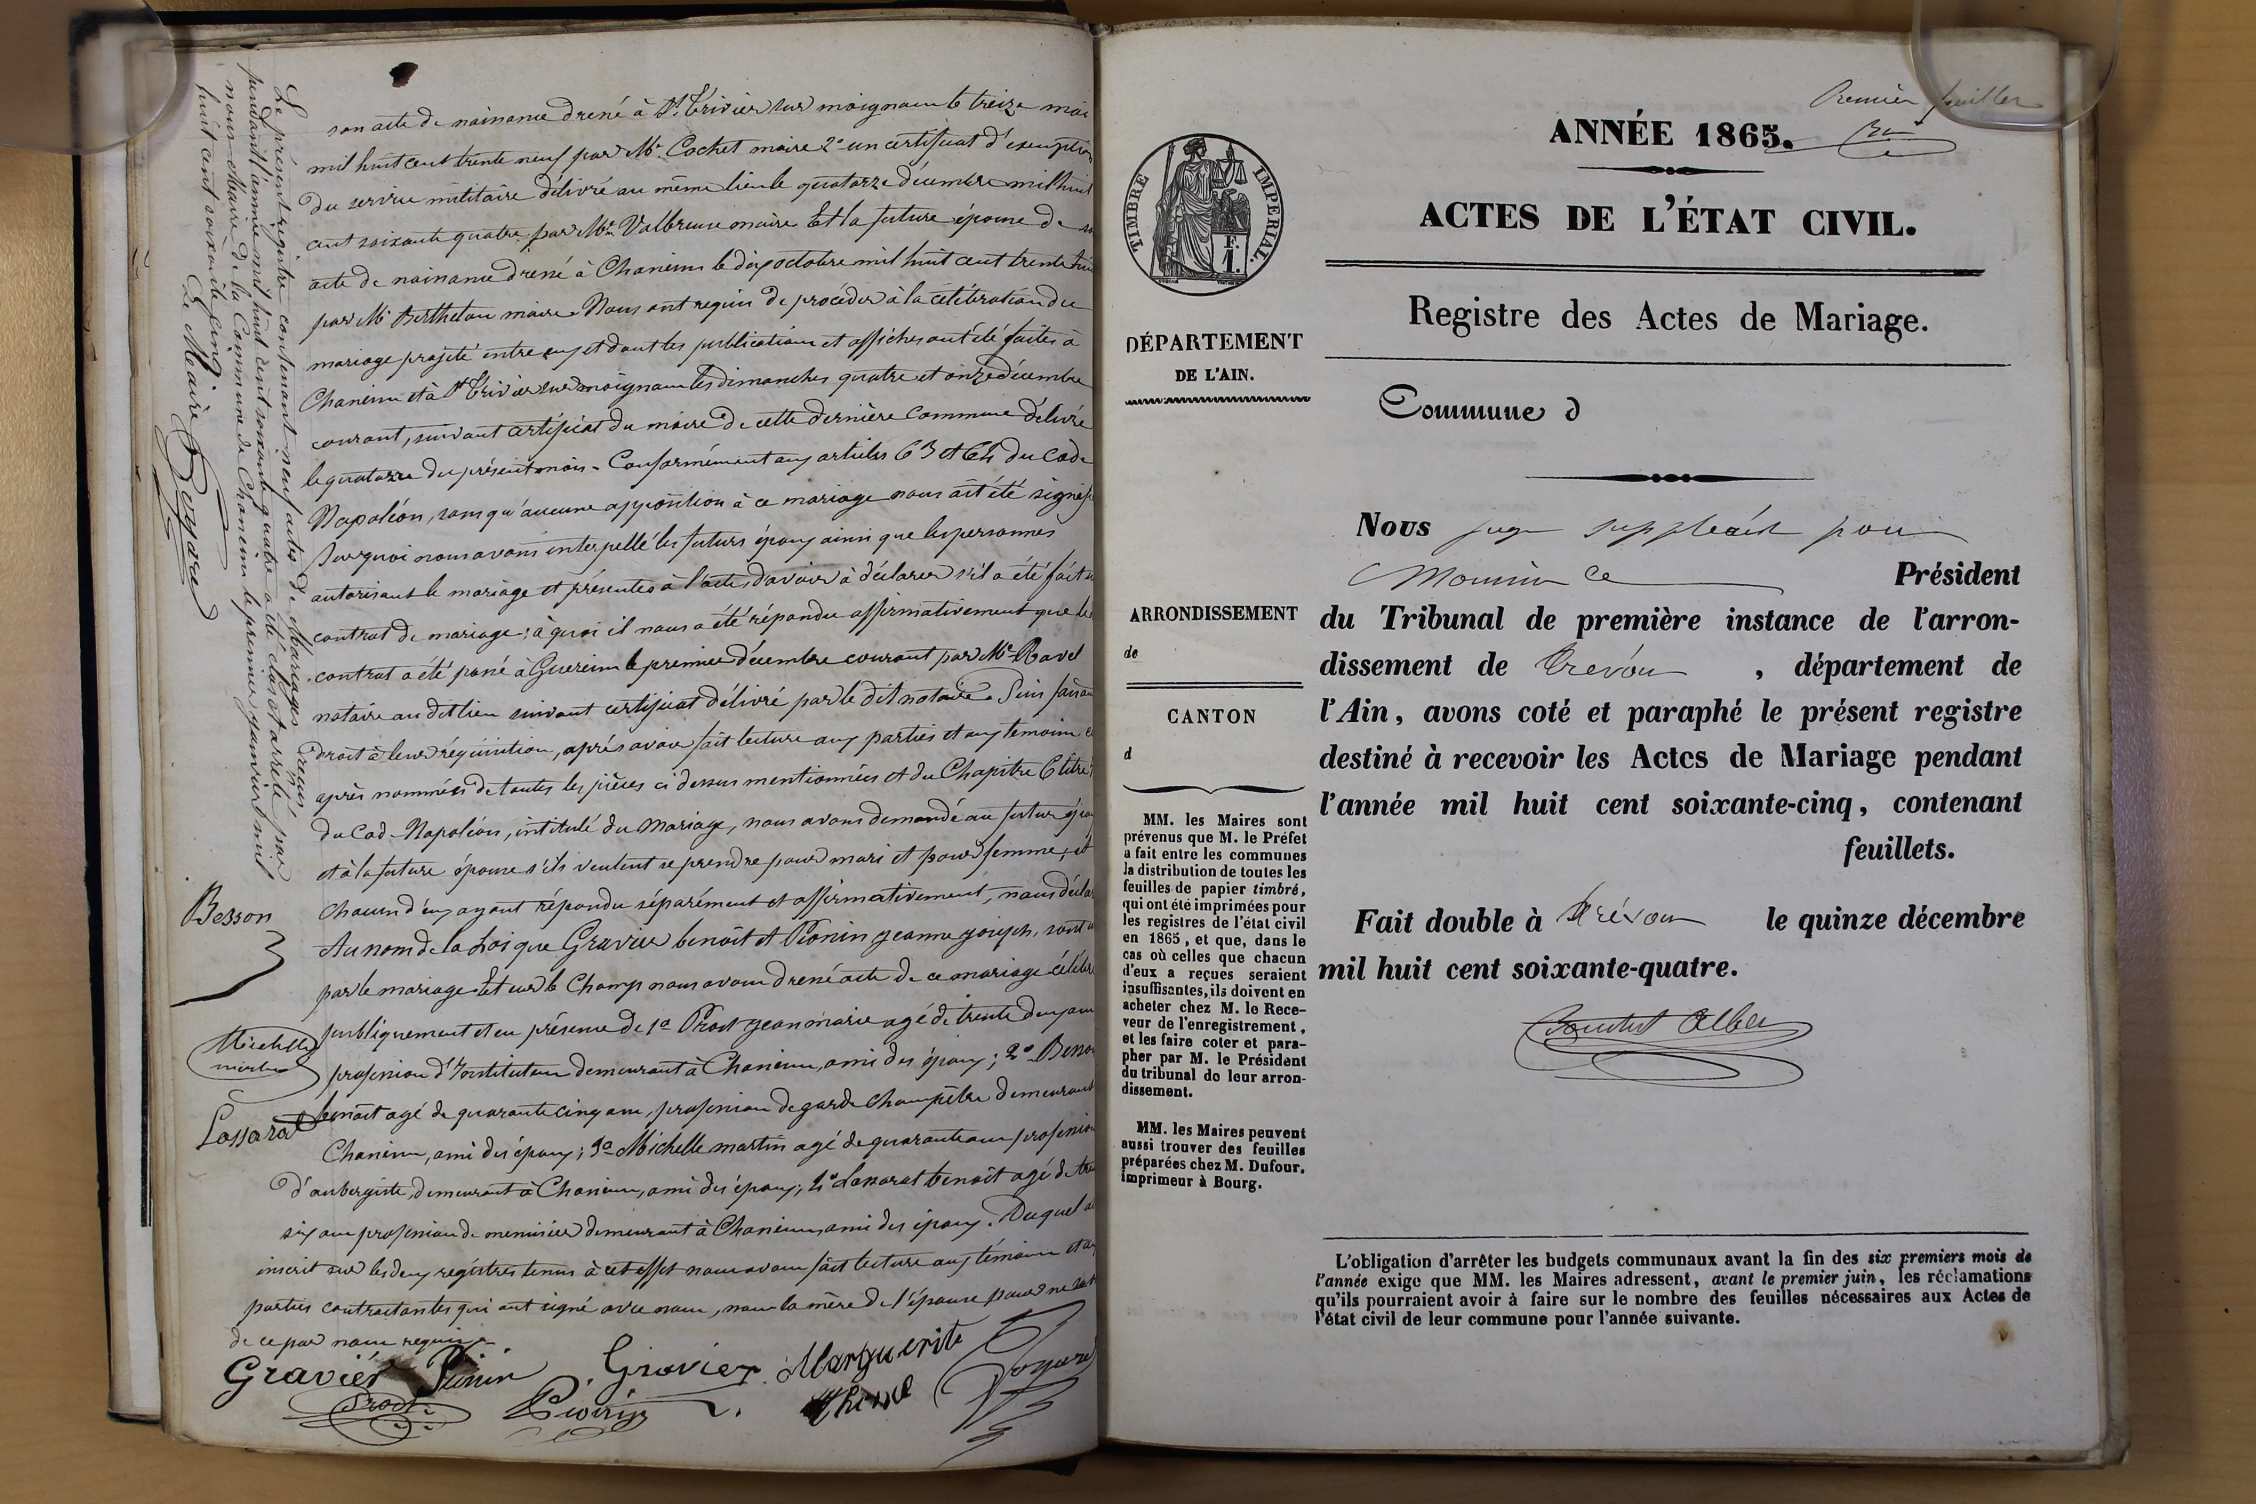 son acte de naissance dressé à St Trivier sur moignans le treize mai
mil huit cent trente neuf par Mr Cochet maire 2° un certificat d'exemption
du service militaire délivré au même lieu le quatorze décembre mil huit
cent soixante quatre par Mr Valbreuse maire Et la future épouse de
acte de naissance dressé à Chaneins le dix octobre mil huit cent trente huit
par Mr Berthelon maire. Nous ont requis de procéder à la célébration du
mariage projeté entre eux et dont les publications et affiches ont été faites à
Chaneins et à St Trivier sur moignans les dimanches quatre et onze décembre
courant, suivant certificat du maire de cette dernière commune délivré
le quatorze du présent mois. Conformément aux articles 63 et 64 du Code
Napoléon, sans qu'aucune opposition à ce mariage nous ait été signifiée
Sur quoi nous avons interpellé les futurs époux ainsi que les personnes
autorisant le mariage et présentes à l'acte d'avoir à déclarer s'il a été fait un
contrat de mariage: à quoi il nous a été répondu affirmativement que le
contrat a été passé à Guereins le premier décembre courant par Me Ravel
notaire au dit lieu suivant certificat délivré par le dit notaire. Puis faisant
droit à leur réquisition, après avoir fait lecture aux parties et aux témoins ci
après nommés de toutes les pièces ci dessus mentionnées et du Chapitre 6 titre
du Code Napoléon, intitulé du Mariage, nous avons demandé au futur époux
et à la future épouse s'ils veulent se prendre pour mari et pour femme; et
chacun d'eux ayant répondu séparément et affirmativement, nous déclarons
Au nom de la Loi que Gravier benoît et Pionin jeanne joseph, sont unis
par le mariage. Et sur le Champ nous avons dressé acte de ce mariage célébré
publiquement et en présence de 1° Prost jean marie agé de trente deux ans
profession d'Instituteur demeurant à Chaneins, ami des époux; 2° Besson
benoît agé de quarante cinq ans, profession de garde Champêtre demeurant
Chaneins, ami des époux; 3° Michelle martin agé de quarante ans profession
d'aubergiste, demeurant à Chaneins, ami des époux; 4° Lassarat benoît agé de trente
six ans profession de menuisier demeurant à Chaneins ami des époux. Duquel acte
inscrit sur les deux registres tenus à cet effet nous avons fait lecture aux témoins et aux
parties contractantes qui ont signé avec nous, non la mère de l'épouse pour ne savoir
de ce par nous requise
Gravier Pionin Gravier Marguerite
Prost
Boyard
Le présent registre contenant neuf actes de Mariages reçus
pendant l'année mil huit cent soixante quatre a été clos et arrêté par
nous Maire de la Commune de Chaneins le premier janvier mil
huit cent soixante cinq
Le Maire
Boyard
Besson
Michelle
martin
Lassarat
Premier feuillet
ANNÉE 1865.
ACTES DE L'ÉTAT CIVIL.
Registre des Actes de Mariage.
Commune d
TIMBRE IMPÉRIAL.
F.
1.
DÉPARTEMENT
DE L'AIN.
ARRONDISSEMENT
de
CANTON
d
MM. les Maires sont
prévenus que M. le Préfet
a fait entre les communes
la distribution de toutes les
feuilles de papier timbré,
qui ont été imprimées pour
les registres de l'état civil
en 1865, et que, dans le
cas où celles que chacun
d'eux a reçues seraient
insuffisantes, ils doivent en
acheter chez M. le Rece-
veur de l'enregistrement,
et les faire coter et para-
pher par M. le Président
du tribunal de leur arron-
dissement.
MM. les Maires peuvent
aussi trouver des feuilles
préparées chez M. Dufour,
imprimeur à Bourg.
Nous juge suppléant pour
Président
du Tribunal de première instance de l'arron-
dissement de Trévoux , département de
l'Ain, avons coté et paraphé le présent registre
destiné à recevoir les Actes de Mariage pendant
l'année mil huit cent soixante-cinq, contenant
feuillets.
Fait double à Trévoux le quinze décembre
mil huit cent soixante-quatre.
L'obligation d'arrêter les budgets communaux avant la fin des six premiers mois de
l'année exige que MM. les Maires adressent, avant le premier juin, les réclamations
qu'ils pourraient avoir à faire sur le nombre des feuilles nécessaires aux Actes de
l'état civil de leur commune pour l'année suivante.